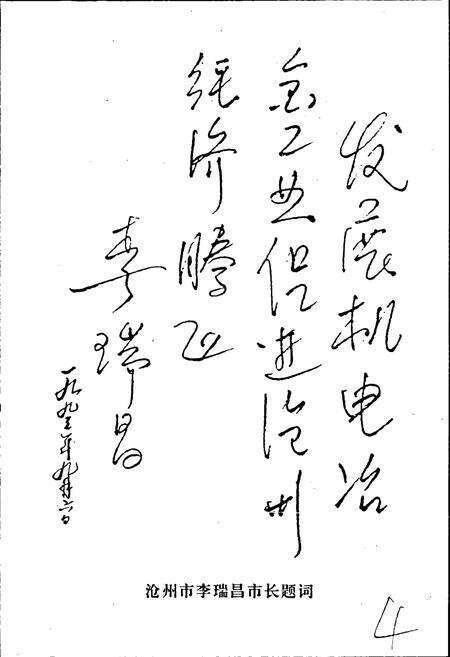 发展机电冶
金工业促进沧州
经济腾飞
李瑞昌
一九九三年九月六日
沧州市李瑞昌市长题词
4